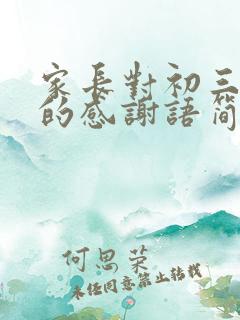 家長對初三
的感謝語簡
何思荣
未经同意禁止转载